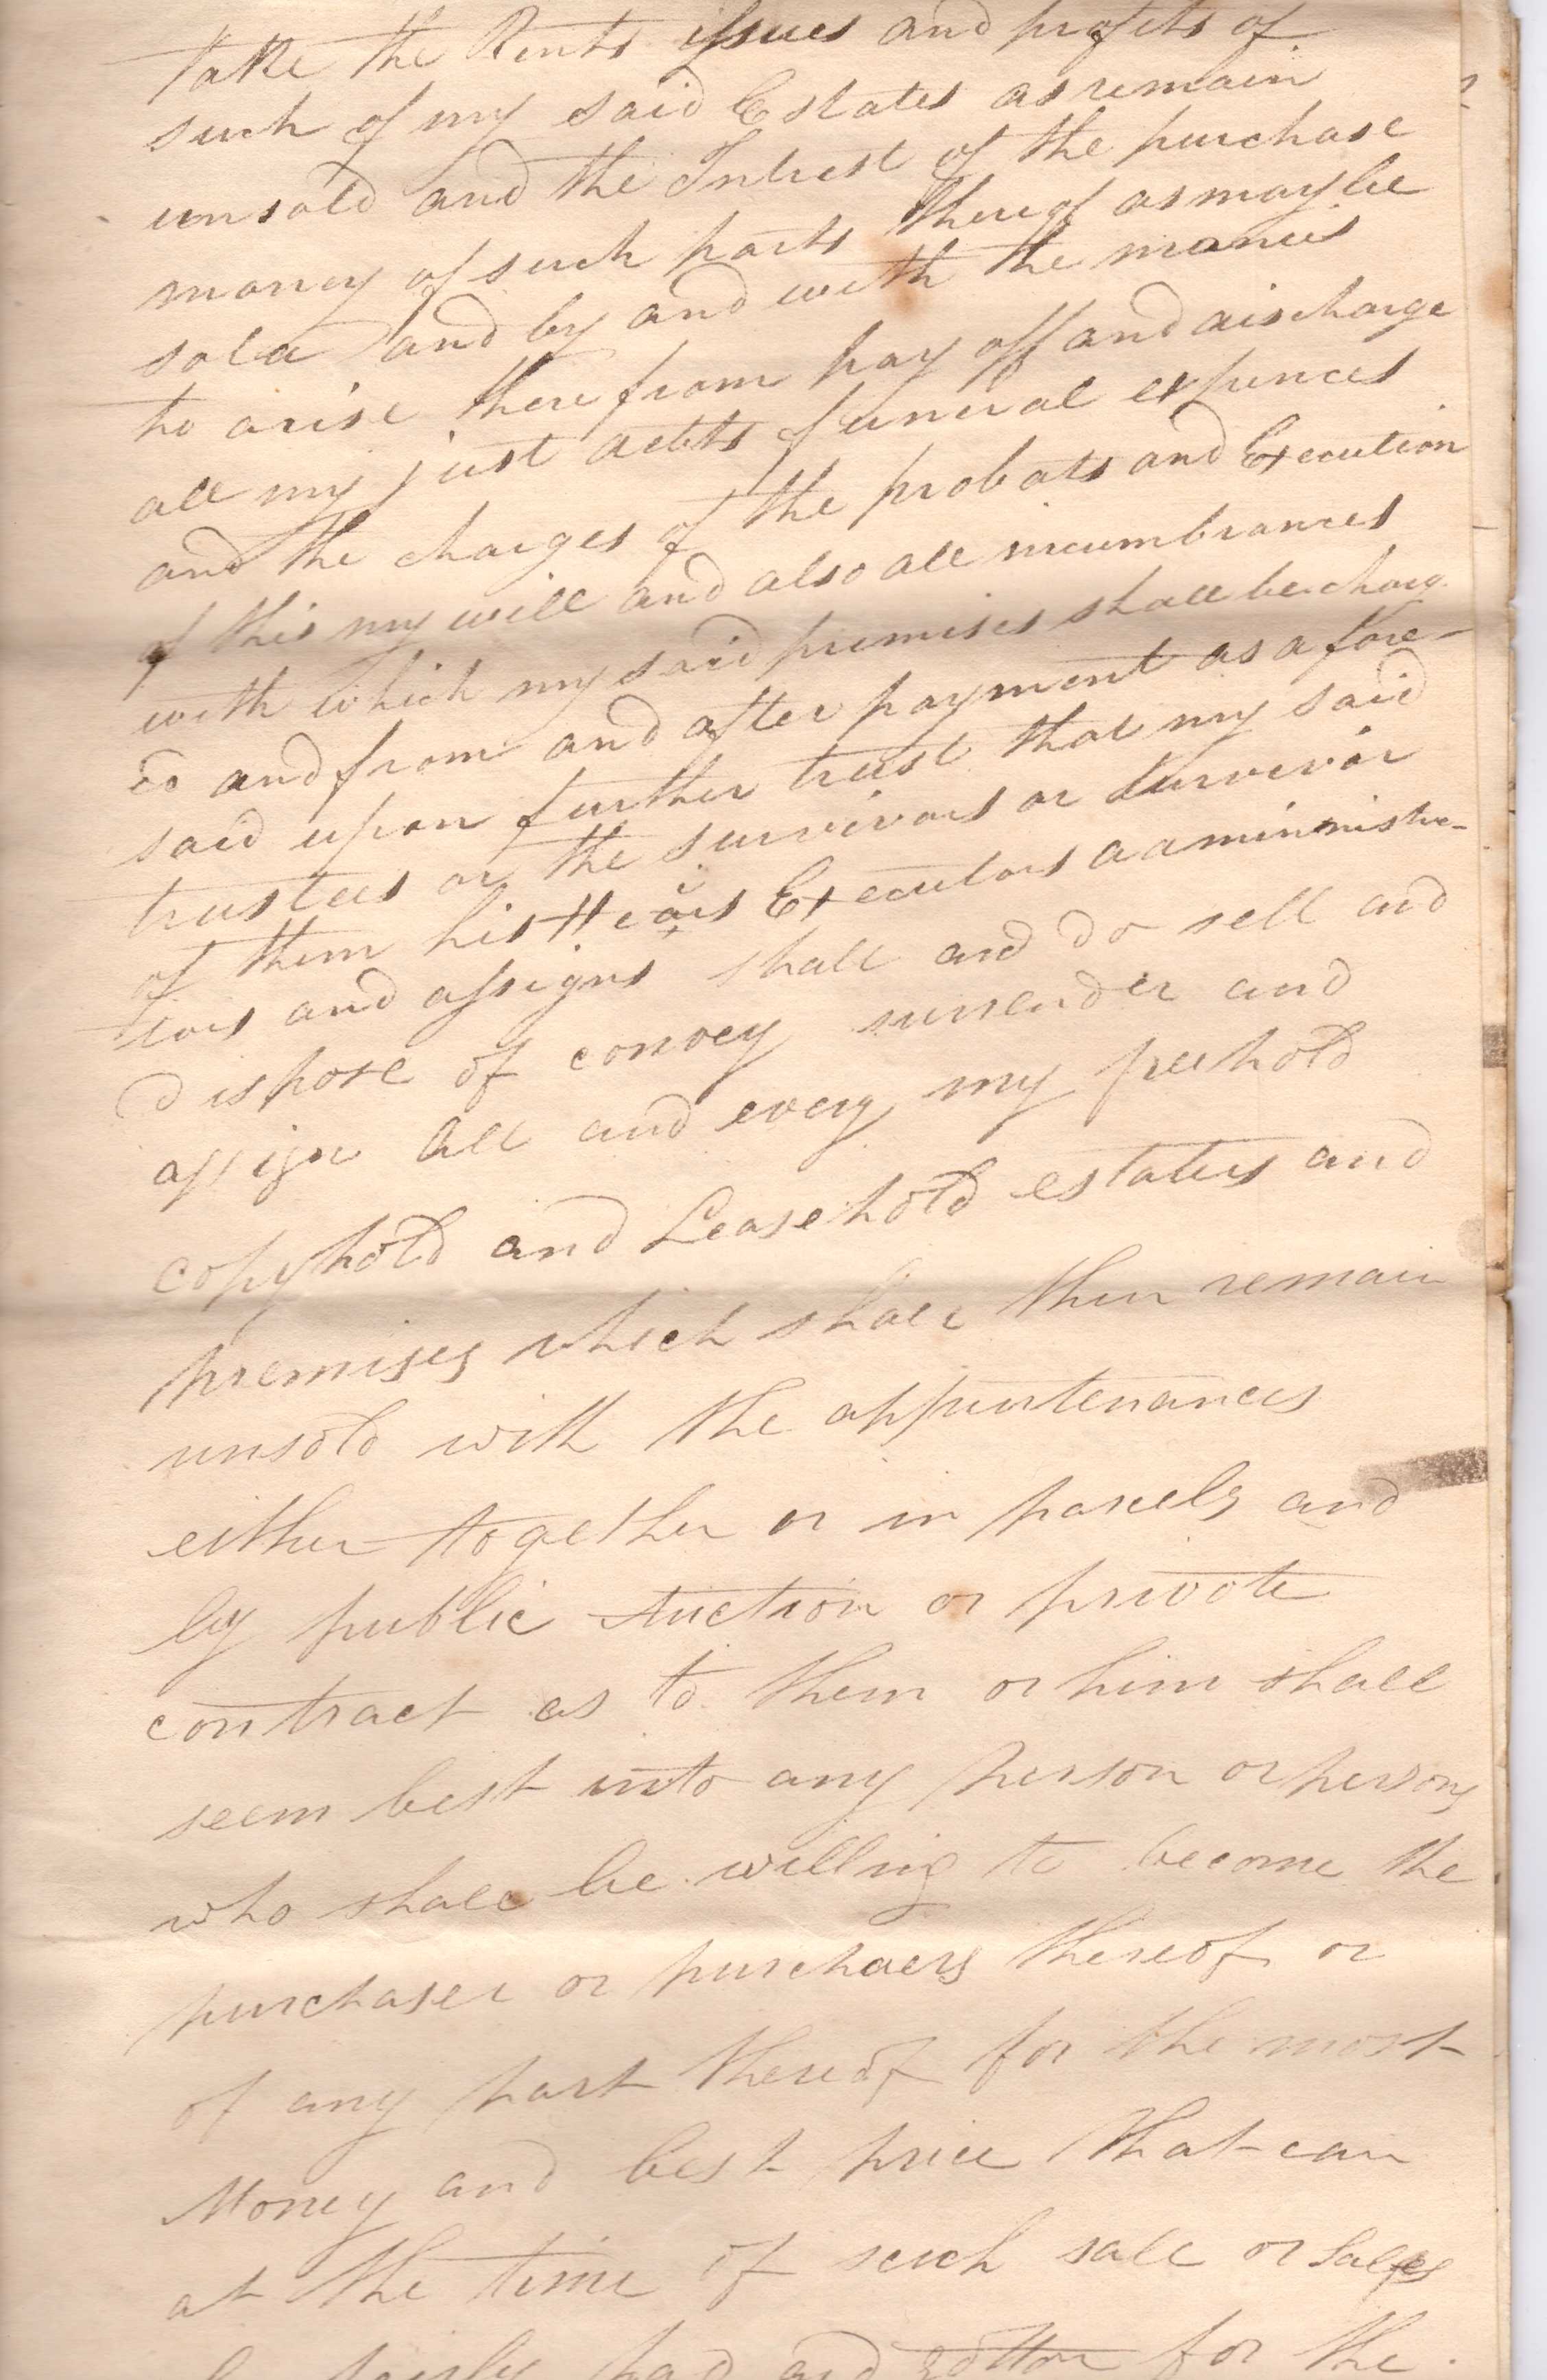 take the Rents issues and profits of
such of my said Estates as remain
unsold and the Intrest of the purchase
money of such parts thereof as may be
sold and by and with the monies
to arise therefrom pay off and discharge
all my just debts funeral expences
and the charges of the probats and Execution
of this my will and also all incumbrances
with which my said premises shall be charg
ed and from and after payment as afore-
said upon further trust that my said
trustees or the survivors or survivor
of them his Heirs Executors administra-
tors and assigns shall and do sell and
dispose of convey surrender and
assign all and every my freehold
copyhold and Leasehold estates and
premises which shall then remain
unsold with the appurtenances
either together or in parcels and
by public Auction or private
contract as to them or him shall
seem best unto any person or persons
who shall be willing to become the
purchaser or purchaers thereof or
of any part thereof for the most
Money and best price that can
at the time of such sale or Sales
be fairly had and gotten for the